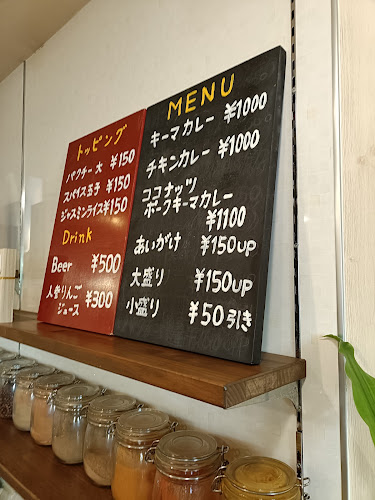 トッピング
パクチー大 ¥150
スパイス玉子 ¥150
ジャスミンライス ¥150
Drink
Beer ¥500
人参りんご
ジュース ¥300
MENU
キーマカレー ¥1000
チキンカレー ¥1000
ココナッツ
ポークキーマカレー
¥1100
あいがけ ¥150up
大盛り ¥150up
小盛り ¥50引き